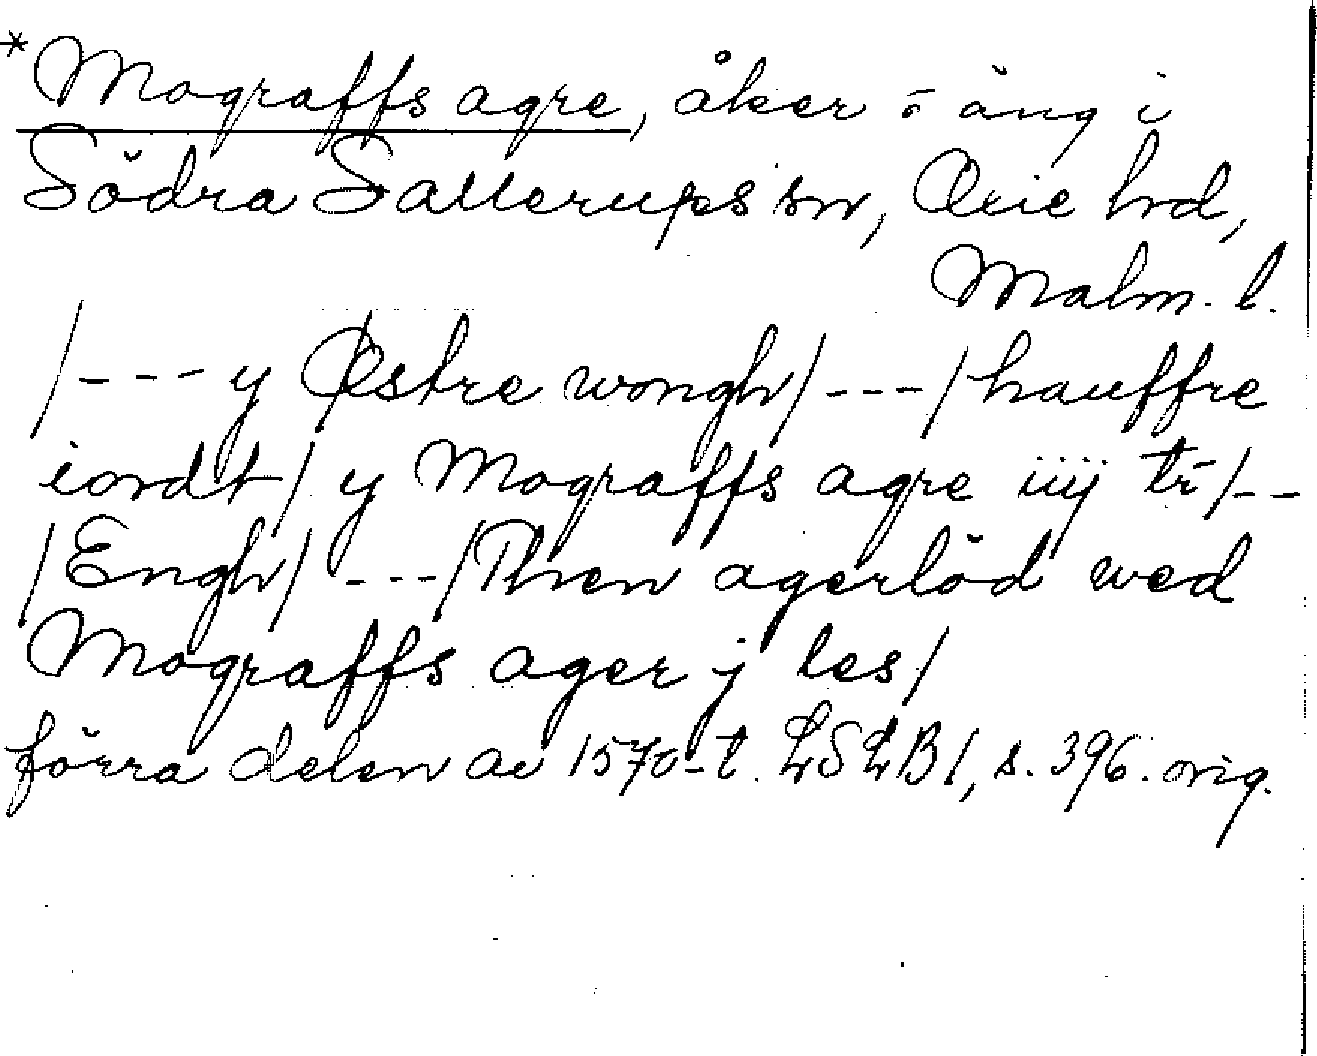 *Mograffs agre, åker o äng i
Södra Sallerups sn, Oxie hrd,
Malm. l.
/--- y Østre wongh/ --- /hauffre
iordt/ y Mograffs agre iiij tr̄/--
/Engh/ --- /Then agerlöd wed
Mograffs ager j les/
förra delen av 1570-t. LSLB 1, s. 396. orig.